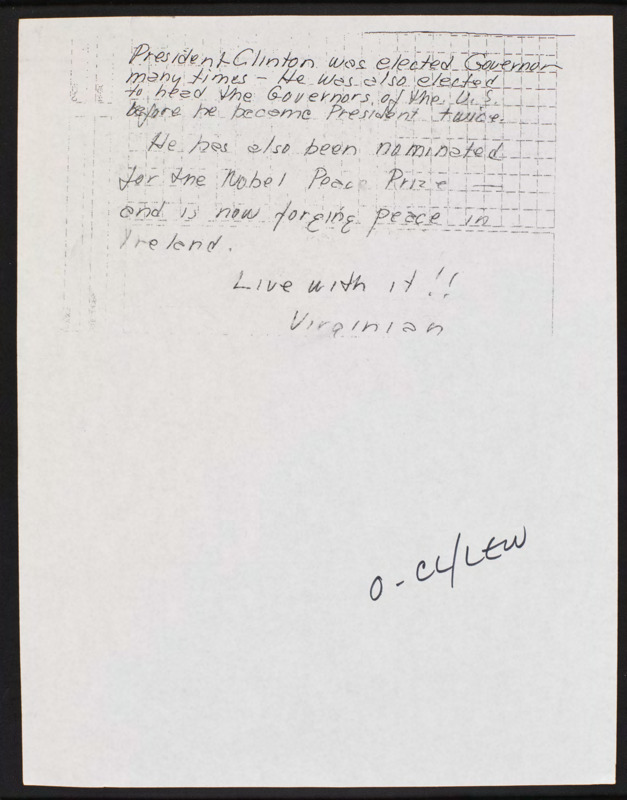 President Clinton was elected Governor
many times - He was also elected
to head the Governors of the U.S.
before he became President twice.
He has also been nominated
for the Nobel Peace Prize —
and is now forging peace in
Ireland.
Live with it!!
Virginian
O-CL/LEW